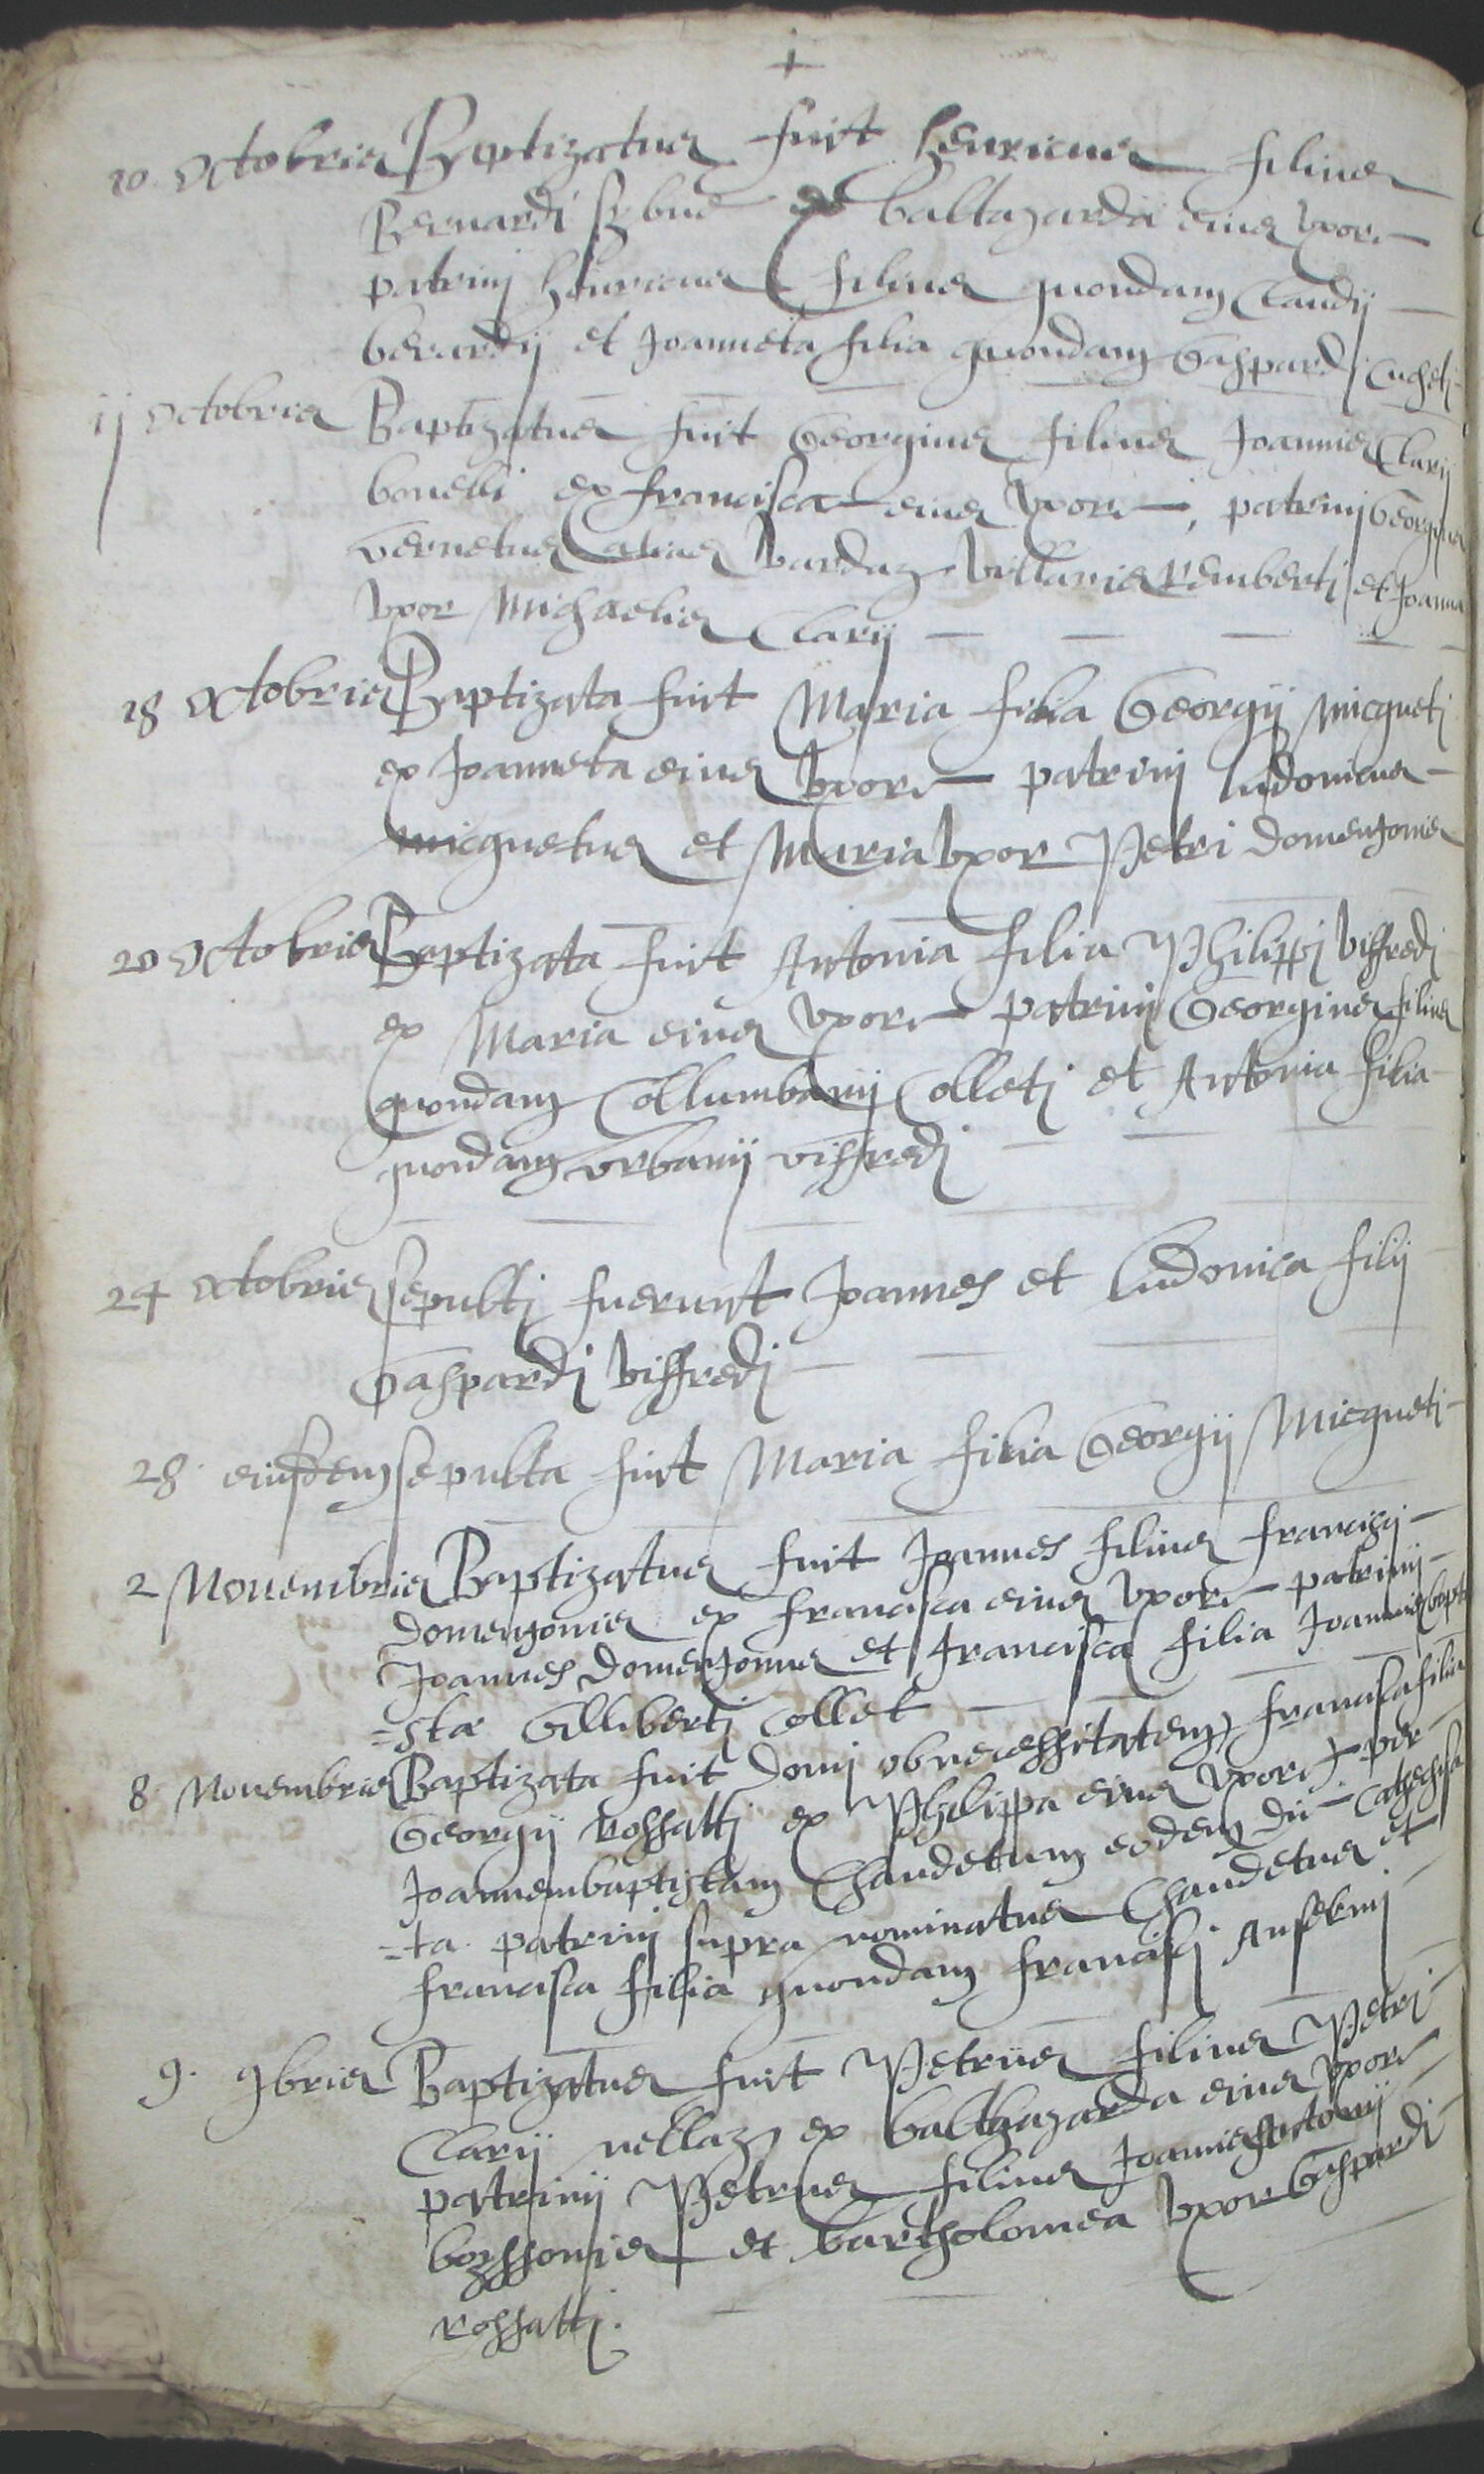 +
10 Octobris Baptizatus fuit henricus filius
Bernardi ex baltazarda eius vxore
patrinj henricus filius quondam Claudij
berardij et Joanneta filia quondam Gaspardj
11 Octobris Baptizatus fuit Georgius filius Joannis Clarij
bonelli ex francisca eius vxore, patrinj Georgius
vernetus alias Vardaz villaris remberti et Joanna
vxor Michaelis Clarij
18 Octobris Baptizata fuit Maria filia Georgij micquetj
ex Joanneta eius vxore patrinj ludouicus
micquetus et Maria vxor Petri domengonis
20 Octobris Baptizata fuit Antonia filia Philippj viffredj
ex Maria eius vxore patrinj Georgius filius
quondam Collumbanij Colletj et Antonia filia
quondam vrbanij viffredj
24 Octobris sepultj fuerunt Joannes et ludouica filij
Gaspardj viffredj
28 eiusdem sepulta fuit Maria filia Georgij Micquetj
2 Nouembris Baptizatus fuit Joannes filius francisci
domengonis ex francisca eius vxore patrinij
Joannes domengonus et francisca filia Joannis bapti
=stæ Gillibertj Collet
8 Nouembris Baptizata fuit domj ob necessitatem francisca filia
Georgij rossattj ex Philippa eius vxore per
Joannem baptistam Chaudetum eodem die Cathechisa
=ta. patrinj supra nominatus Chaudetus et
francisca filia quondam franciscj Anselmj
9. 9bris Baptizatus fuit Petrus filius Petrj
Clarij nellaz ex balthazarda eius vxore
patrinij Petrus filius Joannis Antonij
bossonis et bartholomea vxor Gaspardj
rossattj.